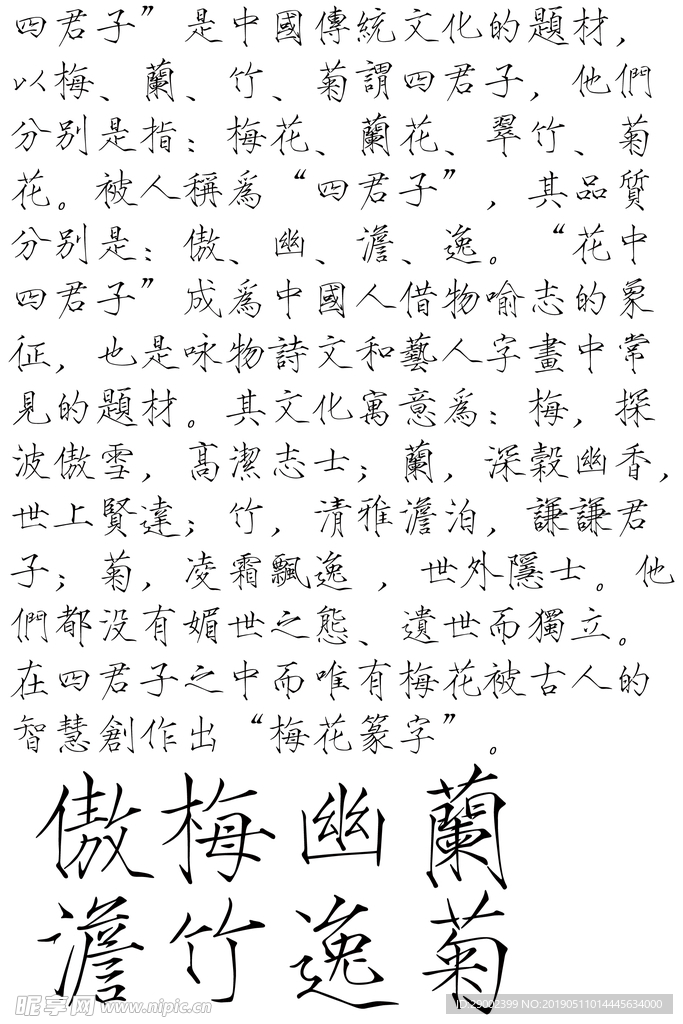 四君子”是中國傳統文化的題材，
以梅、蘭、竹、菊謂四君子，他們
分别是指：梅花、蘭花、翠竹、菊
花。被人稱爲“四君子”，其品質
分别是：傲、幽、澹、逸。“花中
四君子”成爲中國人借物喻志的象
征，也是咏物詩文和藝人字畫中常
見的題材。其文化寓意爲：梅，探
波傲雪，高潔志士；蘭，深穀幽香，
世上賢達；竹，清雅澹泊，謙謙君
子；菊，凌霜飄逸，世外隱士。他
們都没有媚世之態、遺世而獨立。
在四君子之中而唯有梅花被古人的
智慧創作出“梅花篆字”。
傲梅幽蘭
澹竹逸菊
昵享网 www.nipic.cn
ID:29002399 NO:20190511014445634000